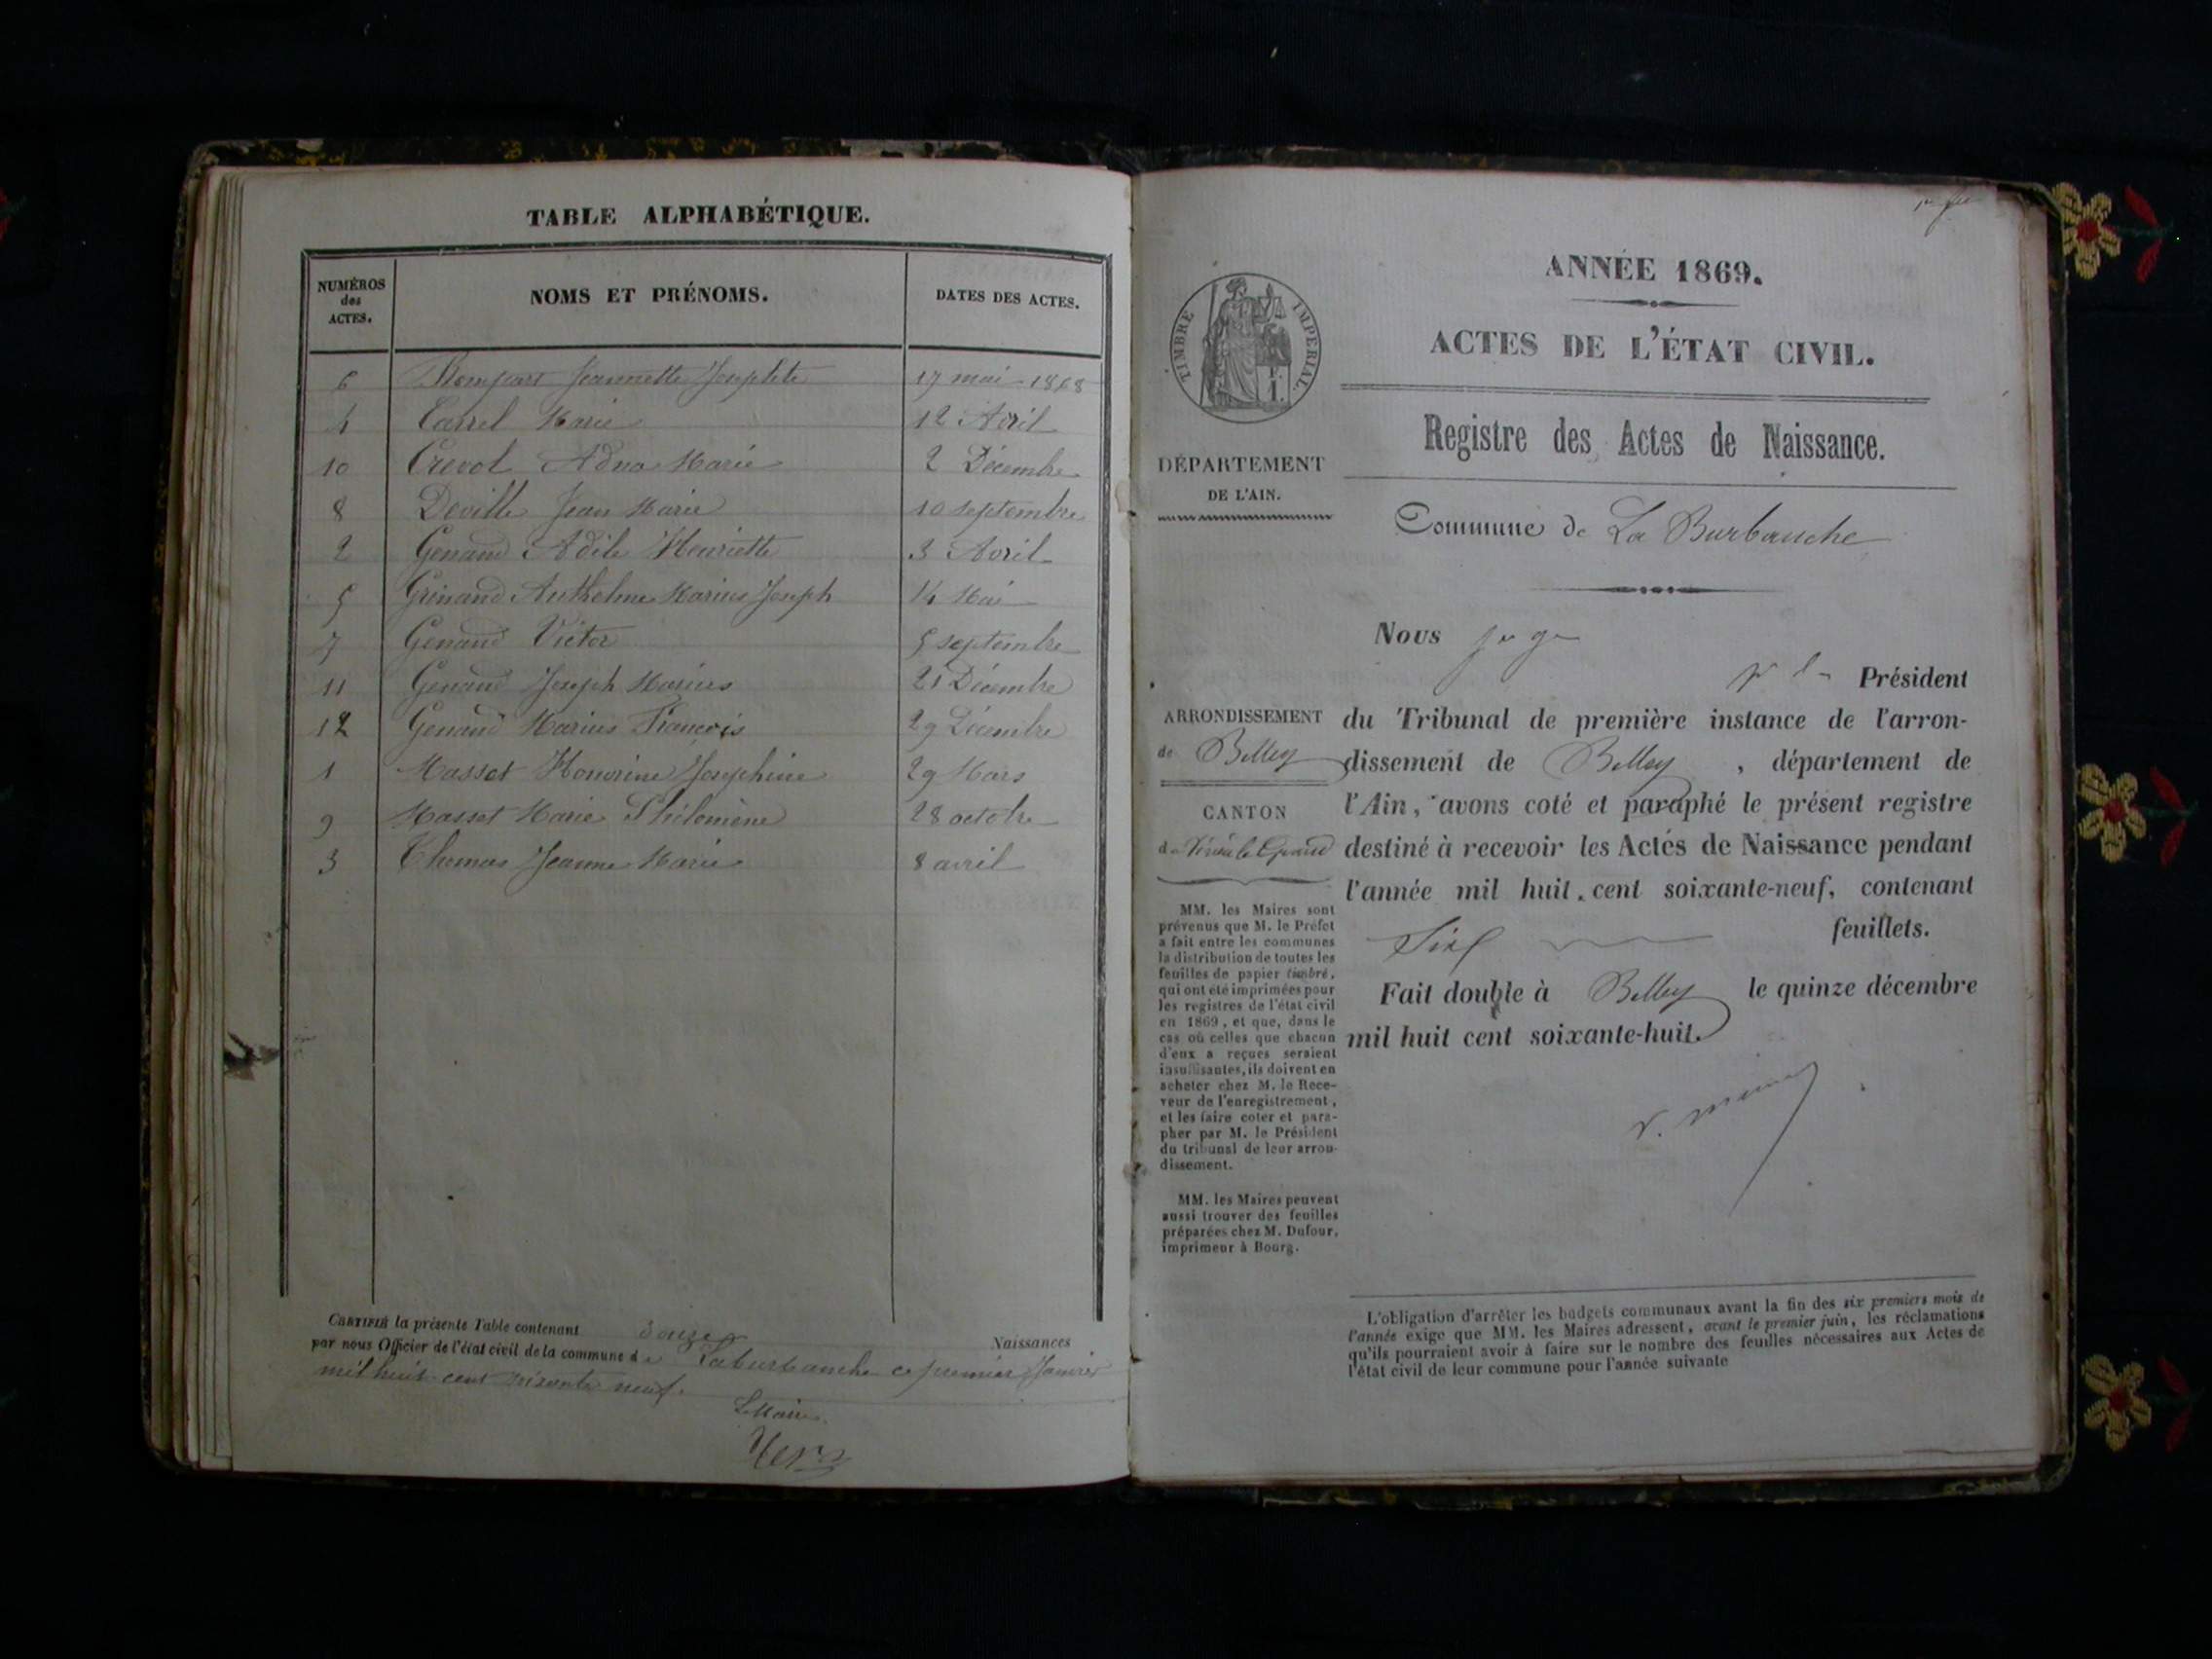 TABLE ALPHABÉTIQUE.
NUMÉROS des ACTES. NOMS ET PRÉNOMS. DATES DES ACTES.
6 Jeannette Josephte 17 mai 1868
4 Carrel Marie 12 Avril
10 Crevot Marie 2 Décembre
8 Deville Jean Marie 10 septembre
2 Genand Adile Henriette 3 Avril
5 Grinand Anthelme Marius Joseph 14 Mai
7 Genand Victor 5 septembre
11 Genand Joseph Marius 21 Décembre
12 Genand Marius François 29 Décembre
1 Masset Honorine Josephine 29 Mars
9 Masset Marie Philomène 28 octobre
3 Thomas Jeanne Marie 8 avril
CERTIFIÉ la présente Table contenant douze Naissances
par nous Officier de l'état civil de la commune de Laburbanche ce premier Janvier
mil huit cent soixante neuf.
Le Maire
ANNÉE 1869.
ACTES DE L'ÉTAT CIVIL.
Registre des Actes de Naissance.
TIMBRE IMPERIAL.
DÉPARTEMENT
DE L'AIN.
Commune de La Burbanche
Nous juge
Président
du Tribunal de première instance de l'arron-
dissement de Belley, département de
l'Ain, avons coté et paraphé le présent registre
destiné à recevoir les Actes de Naissance pendant
l'année mil huit cent soixante-neuf, contenant
Six feuillets.
Fait double à Belley le quinze décembre
mil huit cent soixante-huit.
ARRONDISSEMENT
de Belley
CANTON
de Virieu le Grand
MM. les Maires sont
prévenus que M. le Préfet
a fait entre les communes
la distribution de toutes les
feuilles de papier timbré,
qui ont été imprimées pour
les registres de l'état civil
en 1869, et que, dans le
cas où celles que chacun
d'eux a reçues seraient
insuffisantes, ils doivent en
acheter chez M. le Rece-
veur de l'enregistrement,
et les faire coter et para-
pher par M. le Président
du tribunal de leur arron-
dissement.
MM. les Maires peuvent
aussi trouver des feuilles
préparées chez M. Dufour,
imprimeur à Bourg.
L'obligation d'arrêter les budgets communaux avant la fin des six premiers mois de
l'année exige que MM. les Maires adressent, avant le premier juin, les réclamations
qu'ils pourraient avoir à faire sur le nombre des feuilles nécessaires aux Actes de
l'état civil de leur commune pour l'année suivante